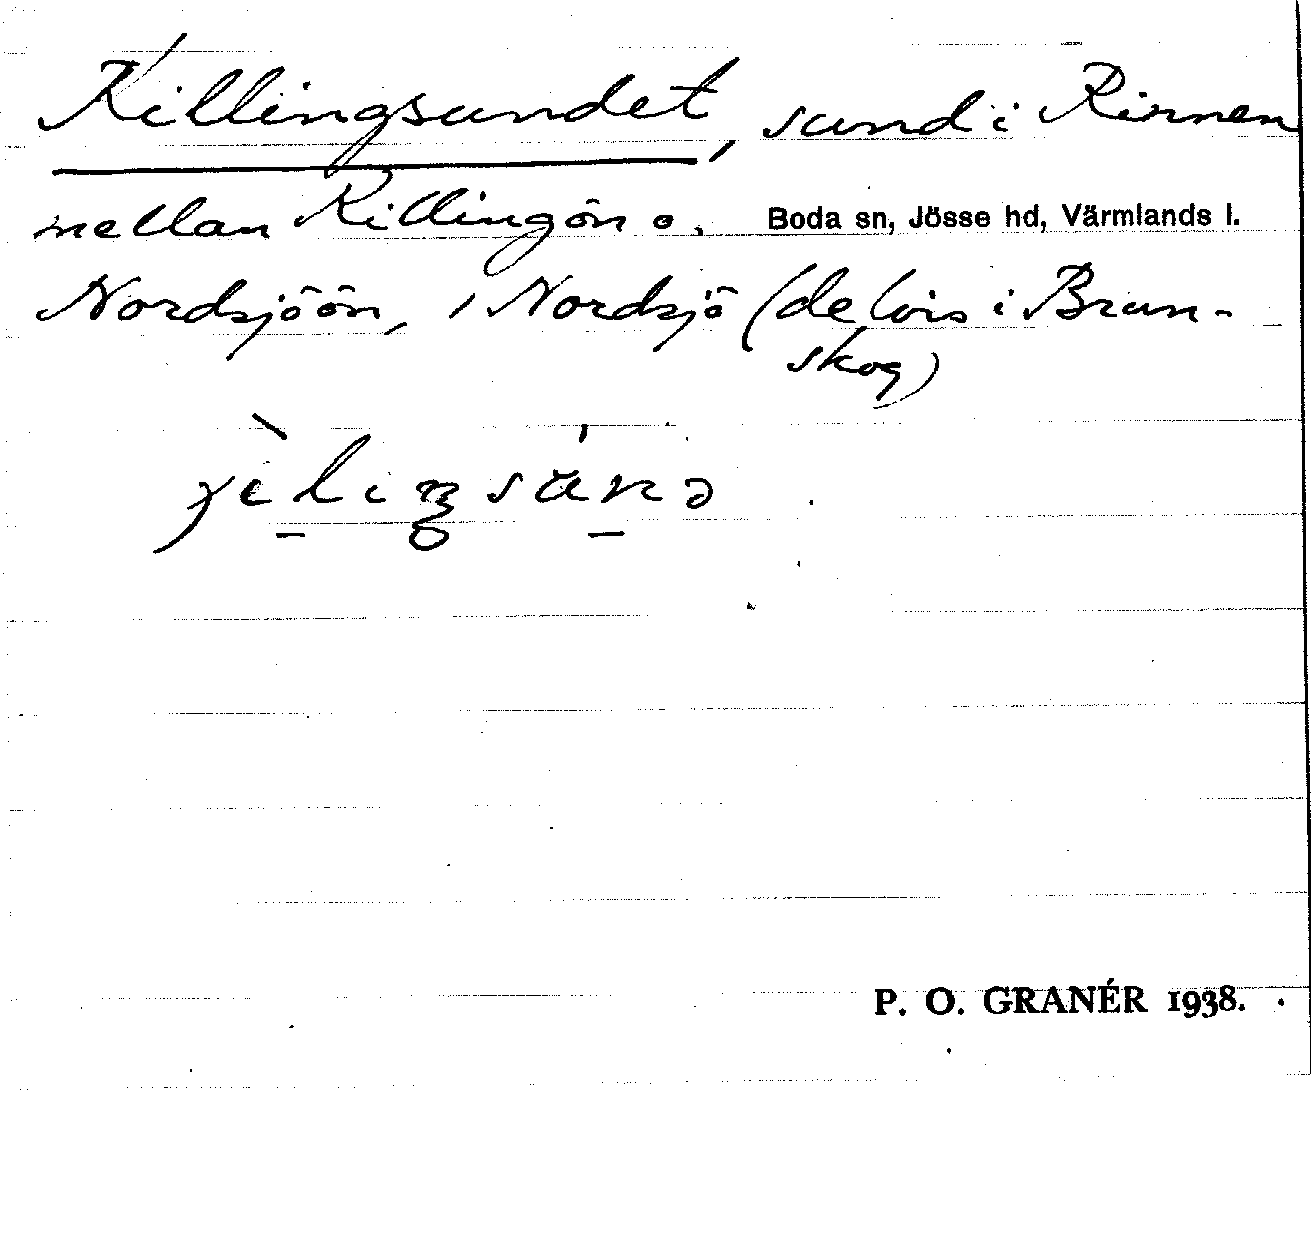 Killingsundet, sund i Rinnen
mellan Killingön o.
Boda sn, Jösse hd, Värmlands l.
Nordsjöön, i Nordsjö (delvis i Brun-
skog)
P. O. GRANÉR 1938.